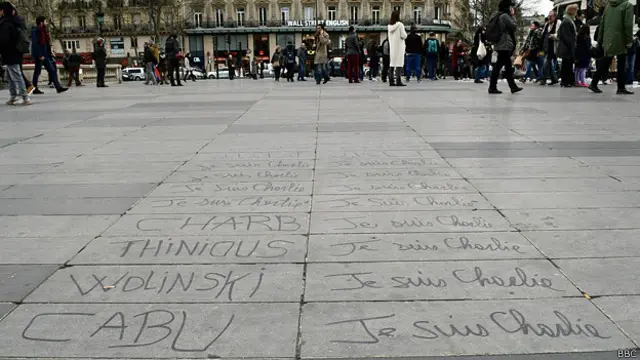 WALL STREET ENGLISH
Je suis Charlie Je suis Charlie
Je suis Charlie Je suis Charlie
Je suis Charlie Je suis Charlie
Je suis Charlie Je suis Charlie
CHARB Je suis Charlie
THINIOUS Je suis Charlie
WOLINSKI Je suis Charlie
CABU Je suis Charlie
BBC